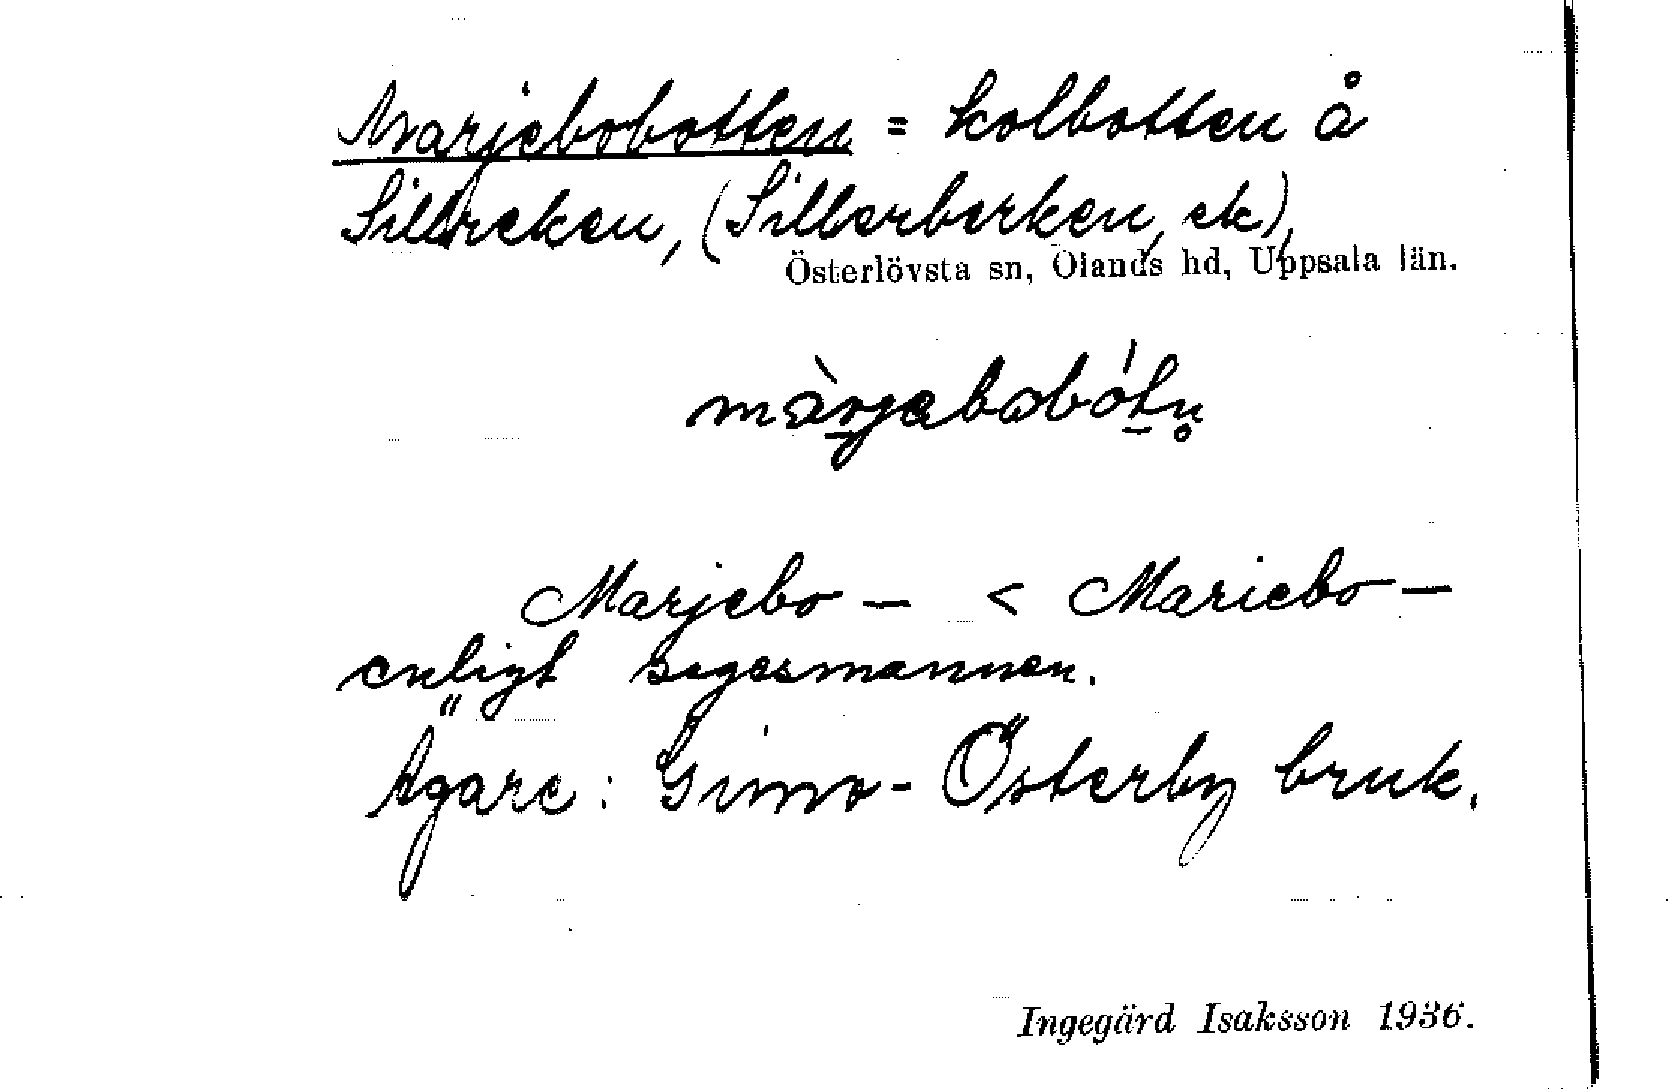 Marjebobotten = kolbotten å
Sillbreken, (Sillerberken, ek),
Österlövsta sn, Olands hd, Uppsala län.
màrjebobótn̥
Marjebo – < Mariebo –
enligt sagesmannen.
Ägare: Gimo-Österby bruk.
Ingegärd Isaksson 1936.